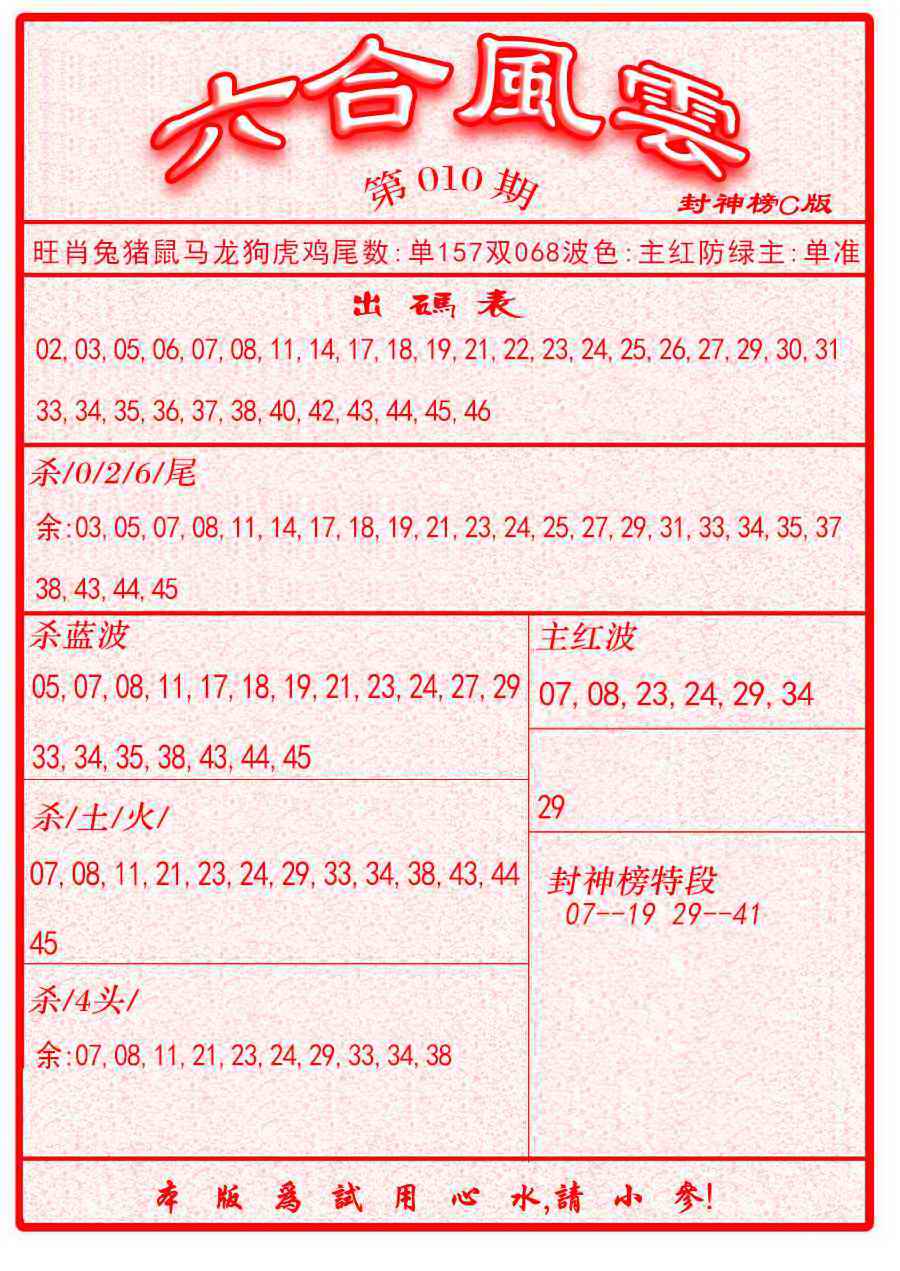 六合風雲
第010期
封神榜C版
旺肖兔猪鼠马龙狗虎鸡尾数:单157双068波色:主红防绿主:单准
出碼表
02,03,05,06,07,08,11,14,17,18,19,21,22,23,24,25,26,27,29,30,31
33,34,35,36,37,38,40,42,43,44,45,46
杀/0/2/6/尾
余:03,05,07,08,11,14,17,18,19,21,23,24,25,27,29,31,33,34,35,37
38,43,44,45
杀蓝波
05,07,08,11,17,18,19,21,23,24,27,29
33,34,35,38,43,44,45
杀/土/火/
07,08,11,21,23,24,29,33,34,38,43,44
45
杀/4头/
余:07,08,11,21,23,24,29,33,34,38
主红波
07,08,23,24,29,34
29
封神榜特段
07--19 29--41
本版爲試用心水,請小參!